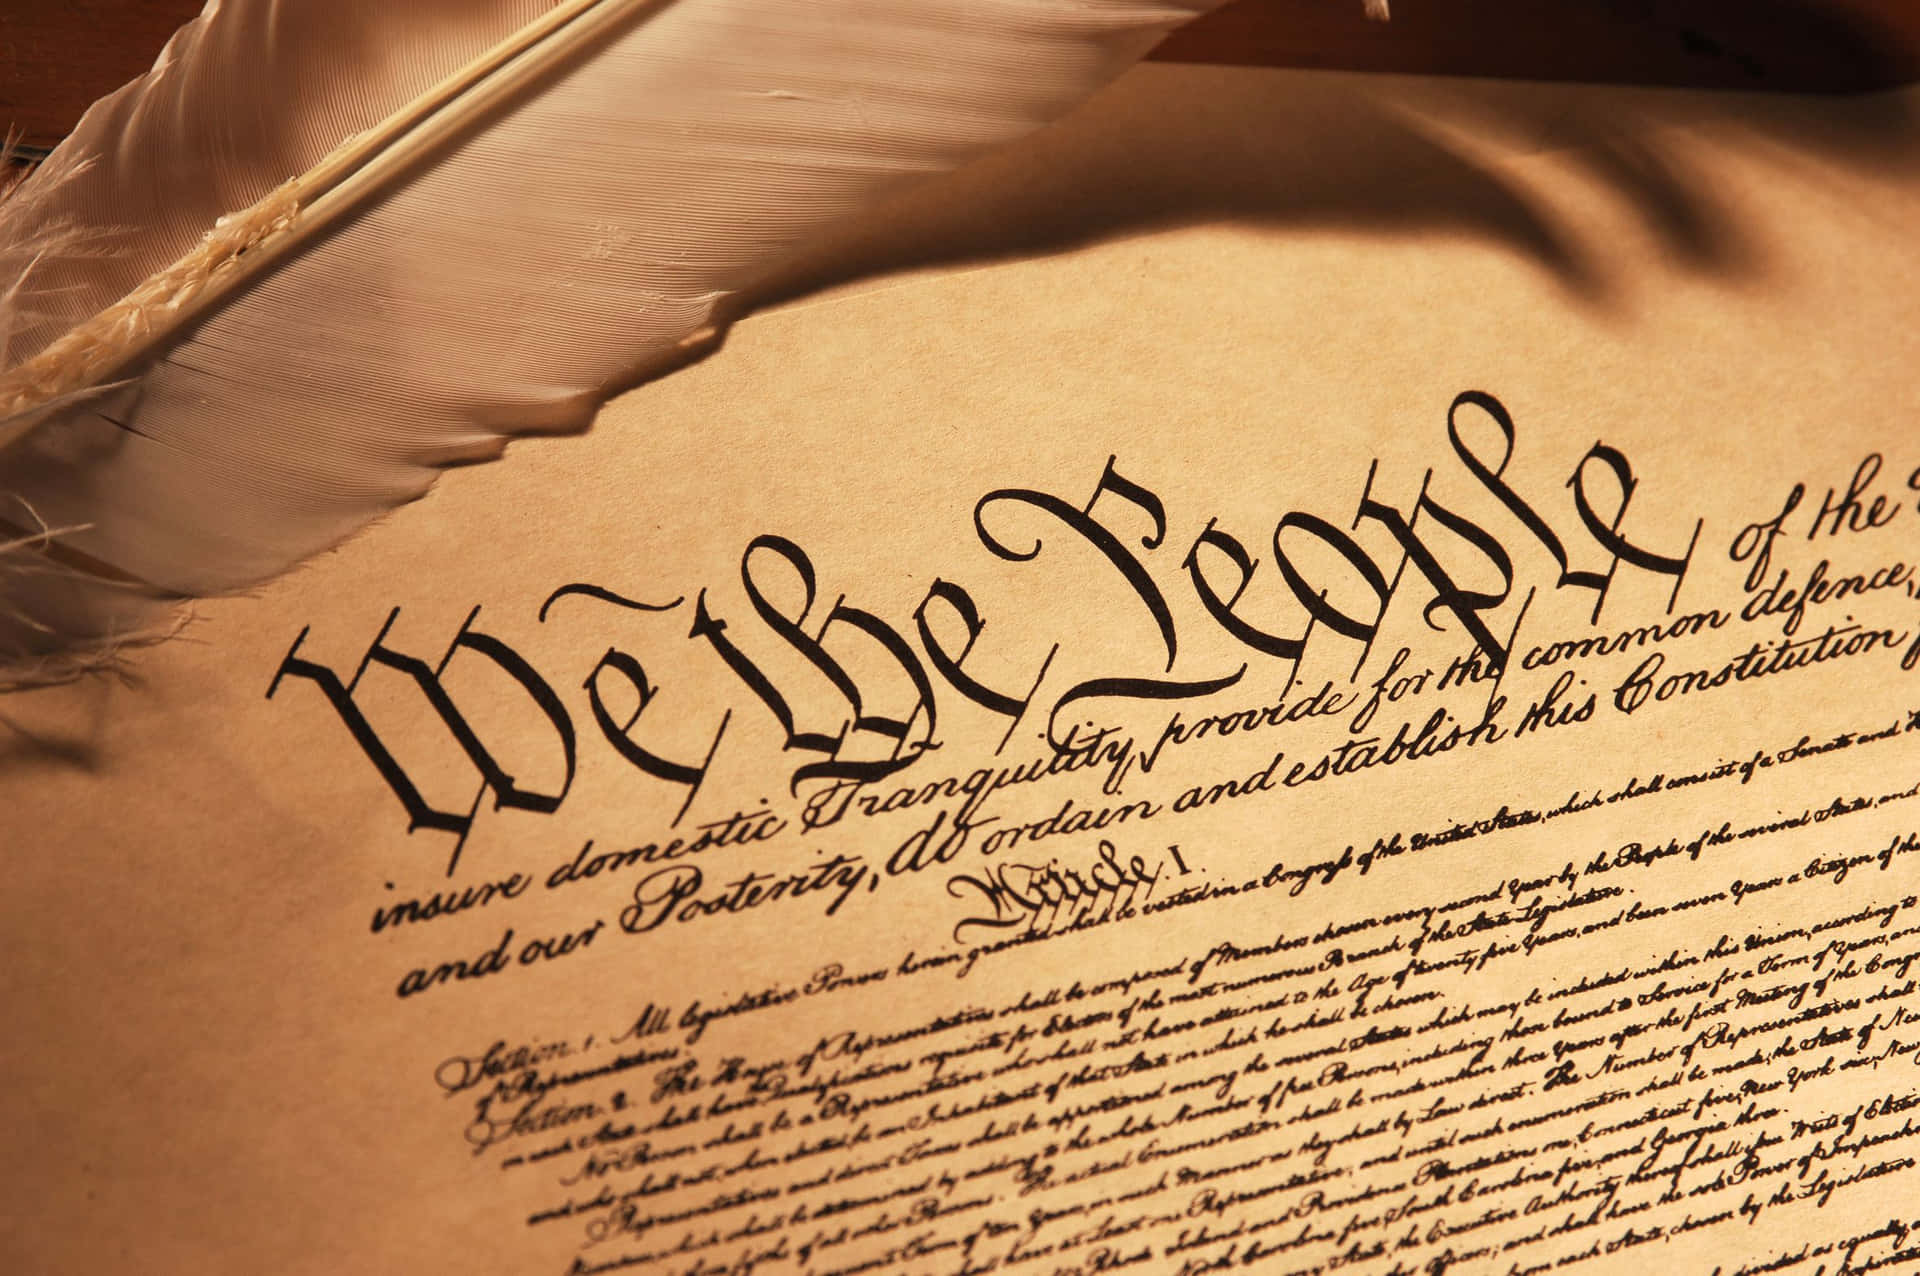 We the People of the
insure domestic Tranquility, provide for the common defence,
and our Posterity, do ordain and establish this Constitution
Article. I.
Section. 1. All legislative Powers herein granted shall be vested in a Congress of the United States, which shall consist of a Senate and
of Representatives.
Section. 2. The House of Representatives shall be composed of Members chosen every second Year by the People of the several States, and
in each State shall have Qualifications requisite for Electors of the most numerous Branch of the State Legislature.
No Person shall be a Representative who shall not have attained to the Age of twenty five Years, and been seven Years a Citizen of the
and who shall not, when elected, be an Inhabitant of that State in which he shall be chosen.
Representatives and direct Taxes shall be apportioned among the several States which may be included within this Union, according to
Numbers, which shall be determined by adding to the whole Number of free Persons, including those bound to Service for a Term of Years, and
three fifths of all other Persons. The actual Enumeration shall be made within three Years after the first Meeting of the
Term of ten Years, in such Manner as they shall by Law direct. The Number of Representatives shall
shall have at Least one Representative; and until such enumeration shall be made, the State of
Rhode Island and Providence Plantations one, Connecticut five, New York six, New
North Carolina five, South Carolina five, and Georgia three.
State, the Executive Authority thereof shall issue Writs of
Officers; and shall have the sole Power of
from each State, chosen by the Legislature
divided as equally